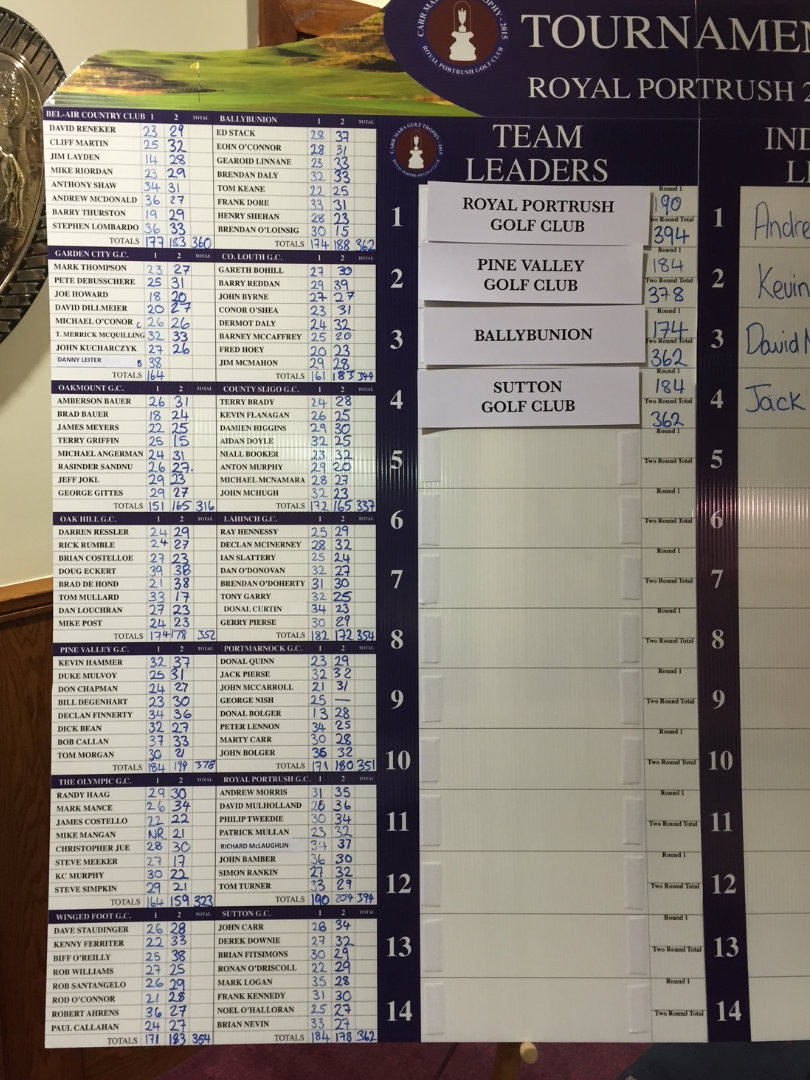 CARR MARA GOLF TROPHY · 2015
ROYAL PORTRUSH GOLF CLUB
TOURNAMEN
ROYAL PORTRUSH 2
BEL-AIR COUNTRY CLUB 1 2 TOTAL
DAVID RENEKER 23 29
CLIFF MARTIN 25 32
JIM LAYDEN 14 28
MIKE RIORDAN 23 29
ANTHONY SHAW 34 31
ANDREW MCDONALD 36 27
BARRY THURSTON 19 29
STEPHEN LOMBARDO 36 33
TOTALS 177 183 360
BALLYBUNION 1 2 TOTAL
ED STACK 28 37
EOIN O'CONNOR 28 31
GEAROID LINNANE 23 33
BRENDAN DALY 32 33
TOM KEANE 22 25
FRANK DORE 33 31
HENRY SHEHAN 28 23
BRENDAN O'LOINSIG 30 15
TOTALS 174 188 362
GARDEN CITY G.C. 1 2 TOTAL
MARK THOMPSON 23 27
PETE DEBUSSCHERE 25 31
JOE HOWARD 18 20
DAVID DILLMEIER 20 27
MICHAEL O'CONOR 26 26
T. MERRICK MCQUILLING 32 33
JOHN KUCHARCZYK 27 26
DANNY LEITER 8 38
TOTALS 164
CO. LOUTH G.C. 1 2 TOTAL
GARETH BOHILL 27 30
BARRY REDDAN 29 39
JOHN BYRNE 27 27
CONOR O'SHEA 23 31
DERMOT DALY 24 32
BARNEY MCCAFFREY 25 20
FRED HOEY 20 23
JIM MCMAHON 29 28
TOTALS 161 183 344
OAKMOUNT G.C. 1 2 TOTAL
AMBERSON BAUER 26 31
BRAD BAUER 18 24
JAMES MEYERS 22 25
TERRY GRIFFIN 25 15
MICHAEL ANGERMAN 24 31
RASINDER SANDNU 26 27.
JEFF JOKL 29 23
GEORGE GITTES 29 27
TOTALS 151 165 316
COUNTY SLIGO G.C. 1 2 TOTAL
TERRY BRADY 24 28
KEVIN FLANAGAN 26 25
DAMIEN HIGGINS 29 30
AIDAN DOYLE 32 25
NIALL BOOKER 23 32
ANTON MURPHY 29 20
MICHAEL MCNAMARA 28 27
JOHN MCHUGH 32 23
TOTALS 172 165 337
OAK HILL G.C. 1 2 TOTAL
DARREN RESSLER 24 29
RICK RUMBLE 24 27
BRIAN COSTELLOE 27 23
DOUG ECKERT 39 38
BRAD DE HOND 21 38
TOM MULLARD 33 17
DAN LOUCHRAN 27 23
MIKE POST 24 23
TOTALS 174 178 352
LAHINCH G.C. 1 2 TOTAL
RAY HENNESSY 25 29
DECLAN MCINERNEY 28 32
IAN SLATTERY 25 24
DAN O'DONOVAN 32 27
BRENDAN O'DOHERTY 31 30
TONY GARRY 32 25
DONAL CURTIN 34 23
GERRY PIERSE 30 29
TOTALS 182 172 354
PINE VALLEY G.C. 1 2 TOTAL
KEVIN HAMMER 32 37
DUKE MULVOY 25 31
DON CHAPMAN 24 27
BILL DEGENHART 23 30
DECLAN FINNERTY 34 36
DICK BEAN 32 27
BOB CALLAN 37 33
TOM MORGAN 30 21
TOTALS 184 194 378
PORTMARNOCK G.C. 1 2 TOTAL
DONAL QUINN 23 29
JACK PIERSE 32 32
JOHN MCCARROLL 21 31
GEORGE NISH 25 —
DONAL BOLGER 13 28
PETER LENNON 34 25
MARTY CARR 30 28
JOHN BOLGER 36 32
TOTALS 171 180 351
THE OLYMPIC G.C. 1 2 TOTAL
RANDY HAAG 29 30
MARK MANCE 26 34
JAMES COSTELLO 22 22
MIKE MANGAN NR. 21
CHRISTOPHER JUE 28 30
STEVE MEEKER 27 17
KC MURPHY 30 22
STEVE SIMPKIN 29 21
TOTALS 164 159 323
ROYAL PORTRUSH G.C. 1 2 TOTAL
ANDREW MORRIS 31 35
DAVID MULHOLLAND 26 36
PHILIP TWEEDIE 30 34
PATRICK MULLAN 23 32
RICHARD McLAUGHLIN 34 37
JOHN BAMBER 36 30
SIMON RANKIN 27 32
TOM TURNER 33 29
TOTALS 190 204 394
WINGED FOOT G.C. 1 2 TOTAL
DAVE STAUDINGER 26 28
KENNY FERRITER 22 33
BIFF O'REILLY 25 38
ROB WILLIAMS 27 25
ROB SANTANGELO 26 29
ROD O'CONNOR 21 28
ROBERT AHRENS 36 27
PAUL CALLAHAN 24 27
TOTALS 171 183 354
SUTTON G.C. 1 2 TOTAL
JOHN CARR 28 34
DEREK DOWNIE 27 32
BRIAN FITSIMONS 30 29
RONAN O'DRISCOLL 22 29
MARK LOGAN 35 28
FRANK KENNEDY 31 30
NOEL O'HALLORAN 25 27
BRIAN NEVIN 33 27
TOTALS 184 178 362
TEAM
LEADERS
1 ROYAL PORTRUSH
GOLF CLUB
Round 1
190
Two Round Total
394
2 PINE VALLEY
GOLF CLUB
184
378
3 BALLYBUNION
174
Two Round Total
362
4 SUTTON
GOLF CLUB
184
362
5
Round 1
Two Round Total
6
Round 1
Two Round Total
7
Round 1
Two Round Total
8
Round 1
Two Round Total
9
Round 1
Two Round Total
10
Round 1
Two Round Total
11
Round 1
Two Round Total
12
Round 1
Two Round Total
13
Round 1
Two Round Total
14
Round 1
Two Round Total
IND
LE
1 Andre
2 Kevin
3 David M
4 Jack
5
6
7
8
9
10
11
12
13
14